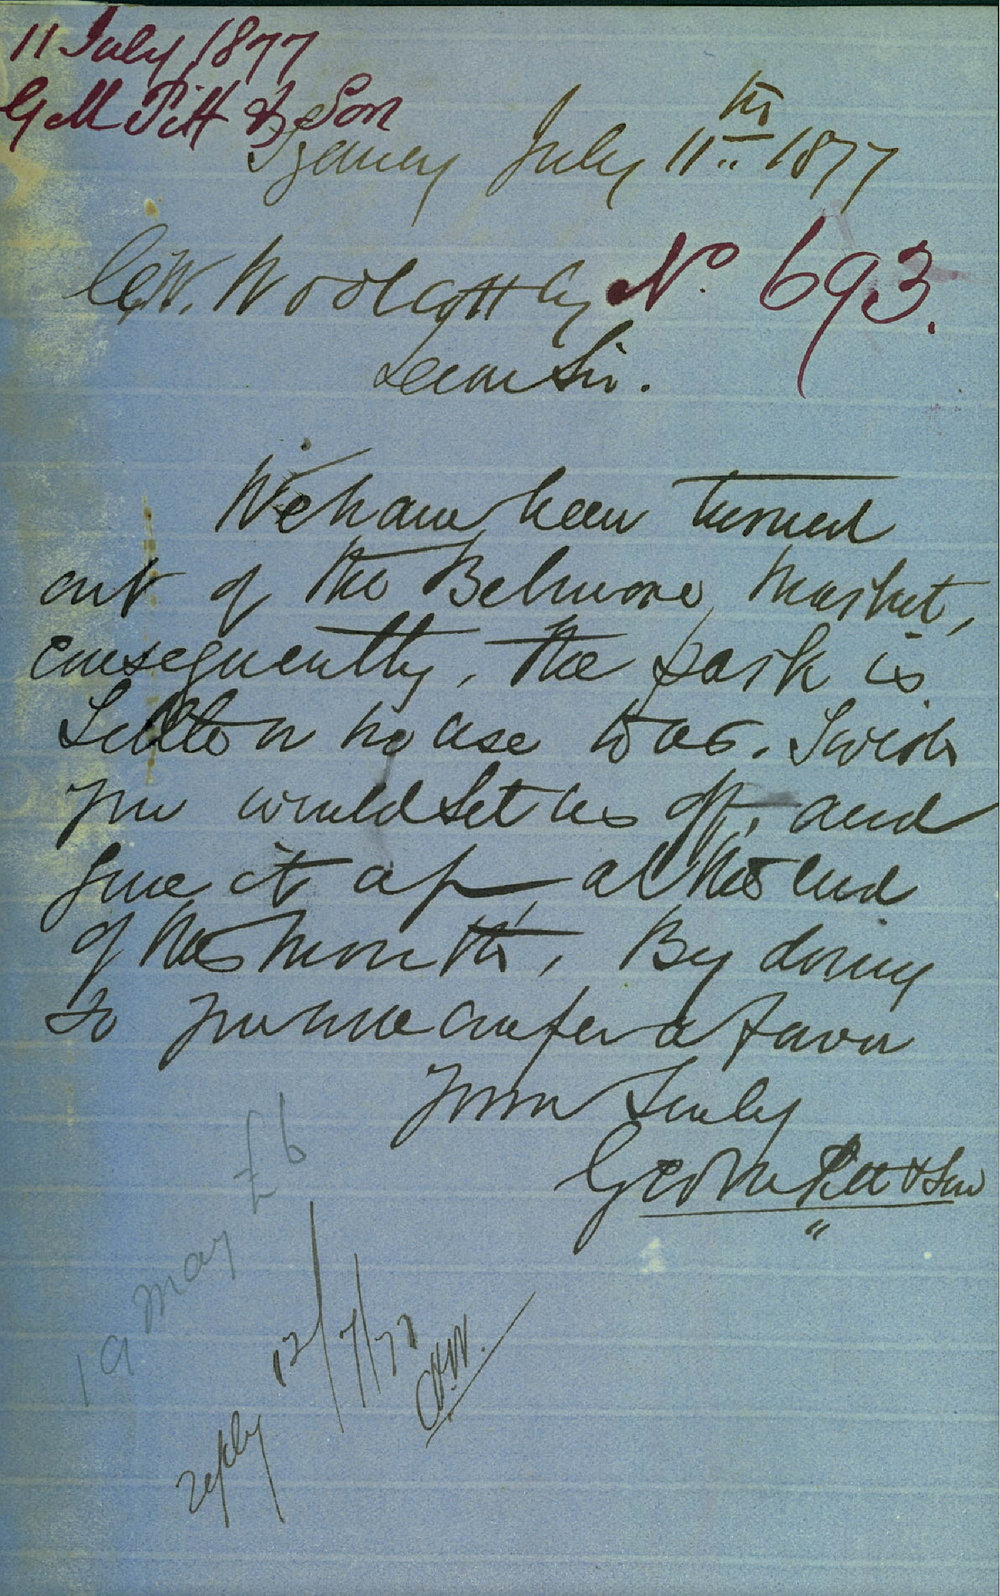 11 July 1877
G M Pitt & Son
Sydney July 11th 1877
C.W. Woolcott Esq
No. 693.
Dear Sir.
We have been turned
out of the Belmore Market,
consequently, the park is
no use to us. I wish
you would let us off, and
give it up, at the end
of this month, By doing
so you will confer a favor
Yours Truly
Geo M Pitt & Son
£6
19 may
reply 12/7/77
C.W.